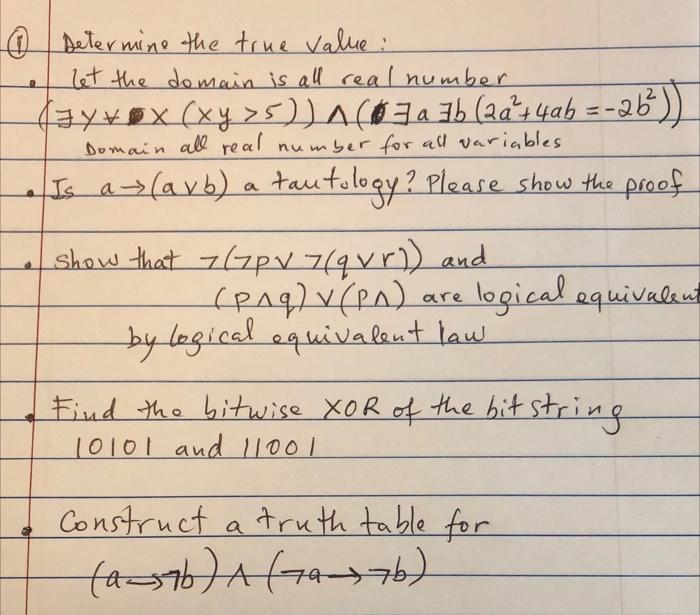 ① Determine the true value :
• let the domain is all real number
(∃y∀x (xy >5)) ∧ (∃a ∃b (2a²+4ab = -2b²))
Domain all real number for all variables
• Is a → (a∨b) a tautology? Please show the proof
• show that ¬(¬p∨ ¬(q∨r)) and
(p∧q) ∨ (p∧) are logical equivalent
by logical equivalent law
• Find the bitwise XOR of the bit string
10101 and 11001
• Construct a truth table for
(a→¬b) ∧ (¬a→¬b)